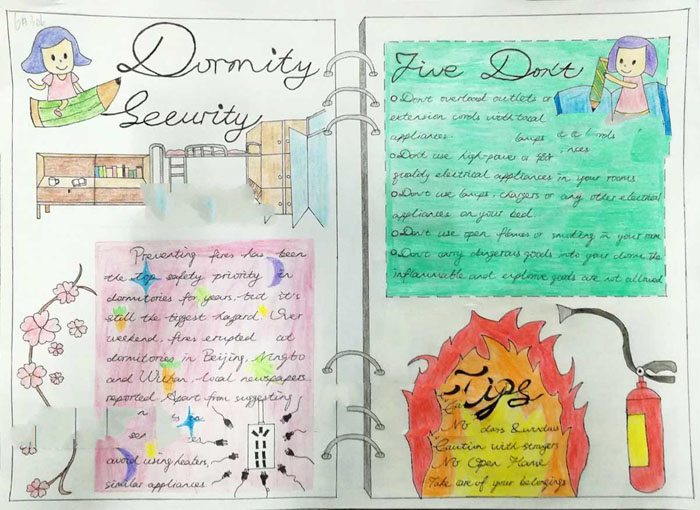 Dormity
Security
Preventing fires has been
the top safety priority in
dormitories for years, but it's
still the biggest hazard. Over
weekend, fires erupted at
dormitories in Beijing, Ningbo
and Wuhan, local newspapers
reported. Apart from suggesting
avoid using heaters,
similar appliances
Five Don't
Don't overload outlets or
extension cords with total
appliances. lamps
nces
Don't use high-power or
quality electrical appliances in your rooms
Don't use lamps, chargers or any other electrical
appliances on your bed.
Don't use open flames or smoking in your room
Don't carry dangerous goods into your dorm. The
inflammable and explosive goods are not allowed
Tips
No doors & windows
Caution with strangers
No Open Flame
Take care of your belongings